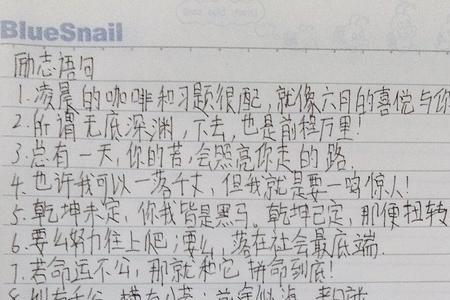 BlueSnail
励志语句
1.凌晨的咖啡和习题很配,就像六月的喜悦与你
2.所谓无底深渊,下去,也是前程万里!
3.总有一天,你的苦,会照亮你走的路.
4.也许我可以一落千丈,但我就是要一鸣惊人!
5.乾坤未定,你我皆是黑马。乾坤已定,那便扭转
6.要么努力往上爬;要么,落在社会最底端.
7.若命运不公,那就和它拼命到底!